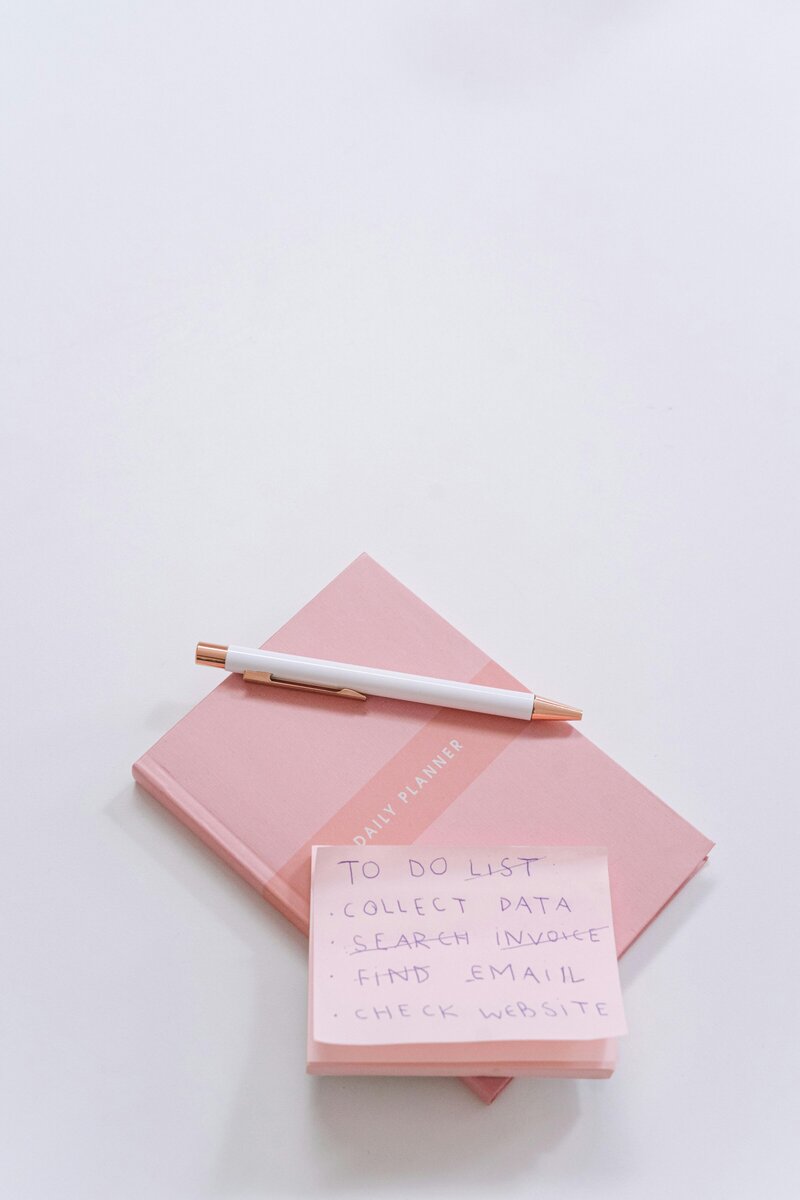 DAILY PLANNER
TO DO LIST
· COLLECT DATA
· SEARCH INVOICE
· FIND EMAIIL
· CHECK WEBSITE